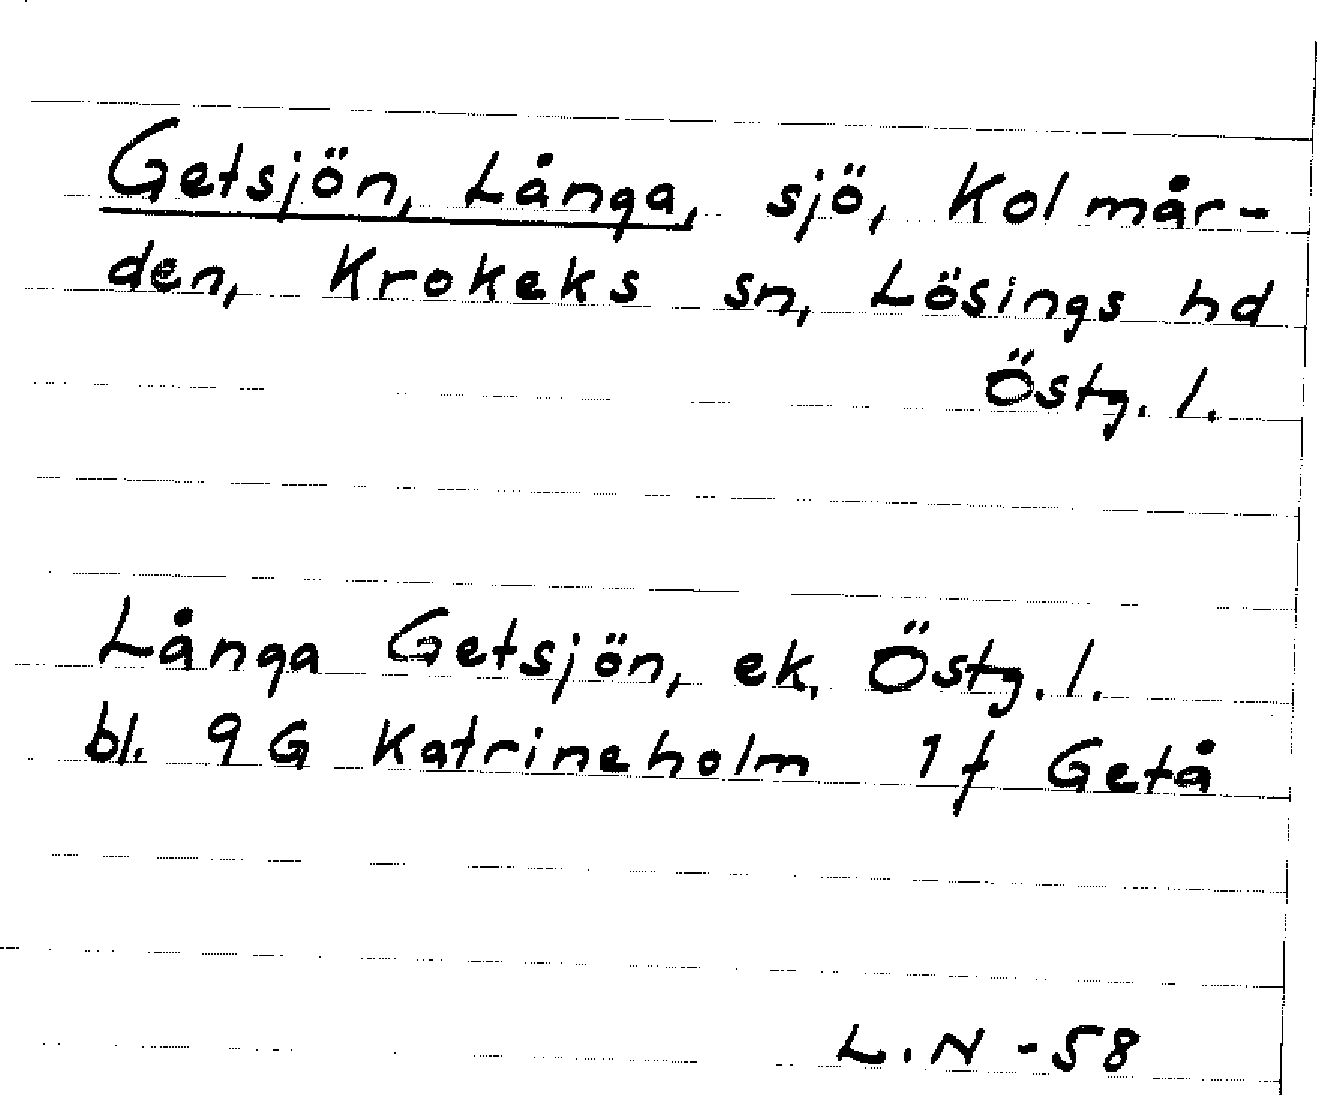 Getsjön, Långa, sjö, Kolmår-
den, Krokeks sn, Lösings hd
Östg. l.
Långa Getsjön, ek. Östg. l.
bl. 9G Katrineholm 1f Getå
L.N -58